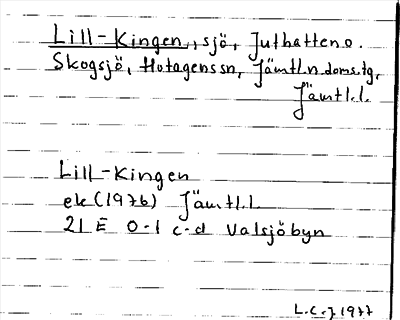 Lill-Kingen, sjö, Juthatten o.
Skogsjö, Hotagens sn, Jämtl. n. doms. tg,
Jämtl. l.
Lill-Kingen
ek (1976) Jämtl. l
21 E 0-1 c-d Valsjöbyn
L.C.J 1977